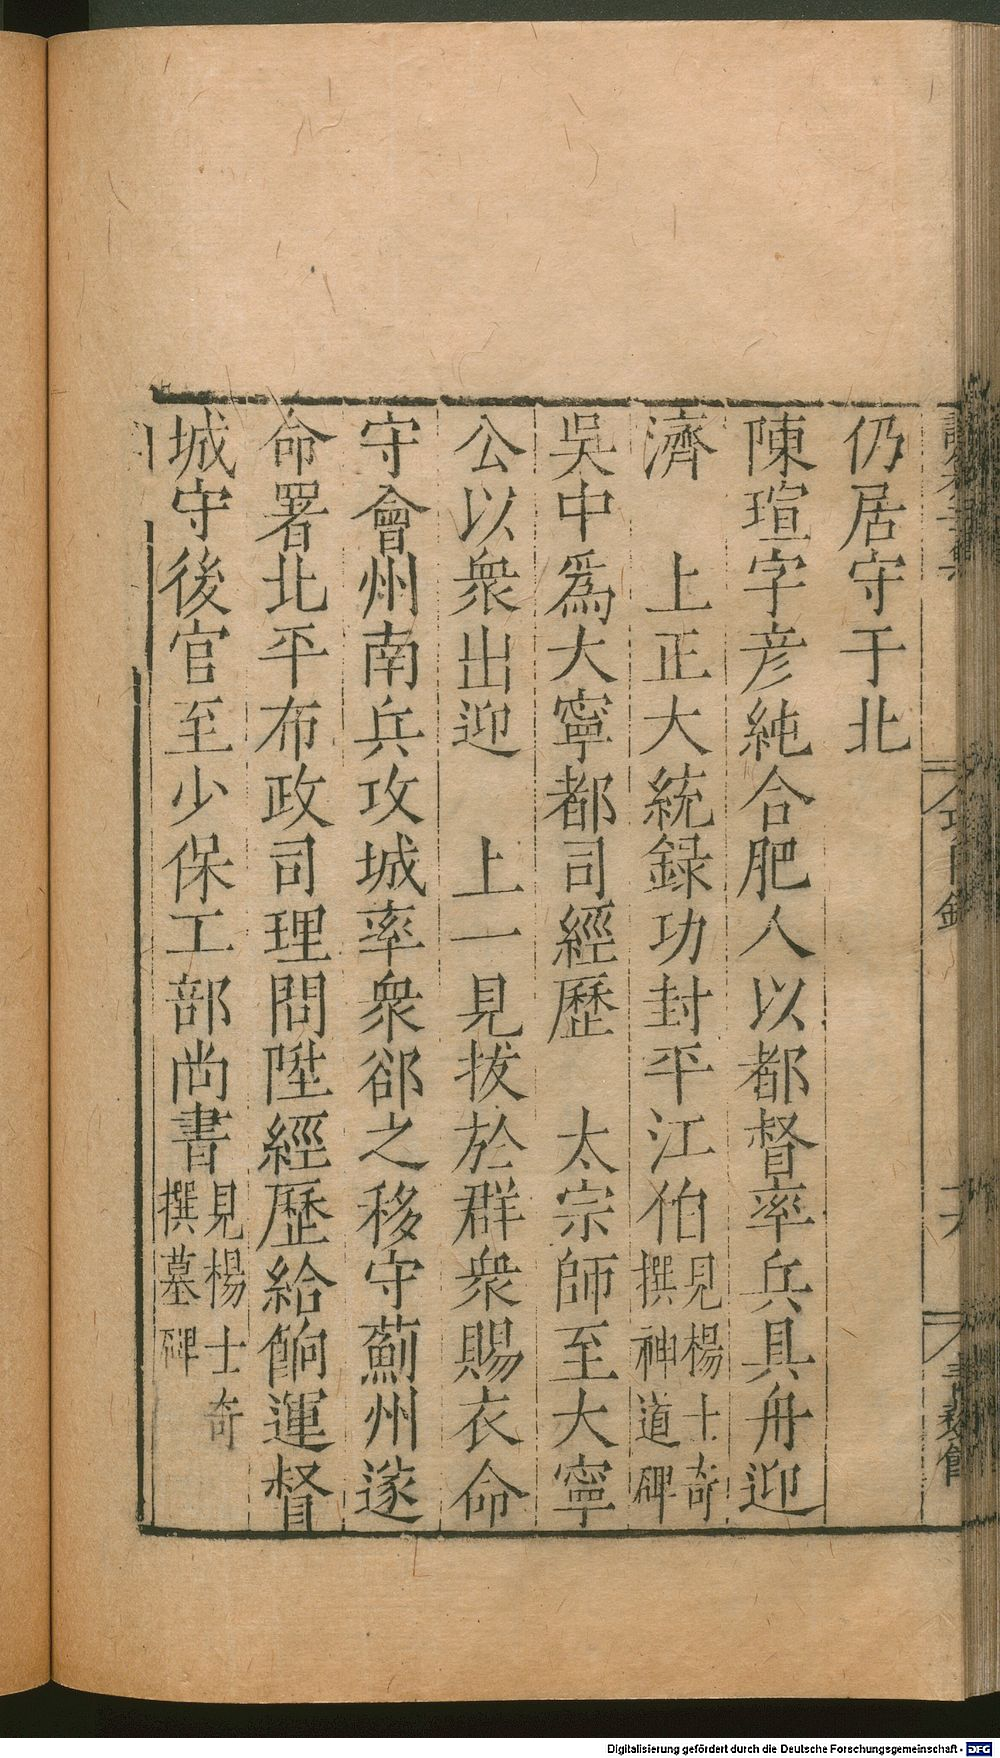 仍居守于北
陳瑄字彦純合肥人以都督率兵具舟迎
濟　上正大統録功封平江伯見楊士奇撰神道碑
吳中爲大寧都司經歷　太宗師至大寧
公以衆出迎　上一見拔於群衆賜衣命
守會州南兵攻城率衆郤之移守薊州遂
命署北平布政司理問陞經歷給餉運督
城守後官至少保工部尚書見楊士奇撰墓碑
Digitalisierung gefördert durch die Deutsche Forschungsgemeinschaft - DFG